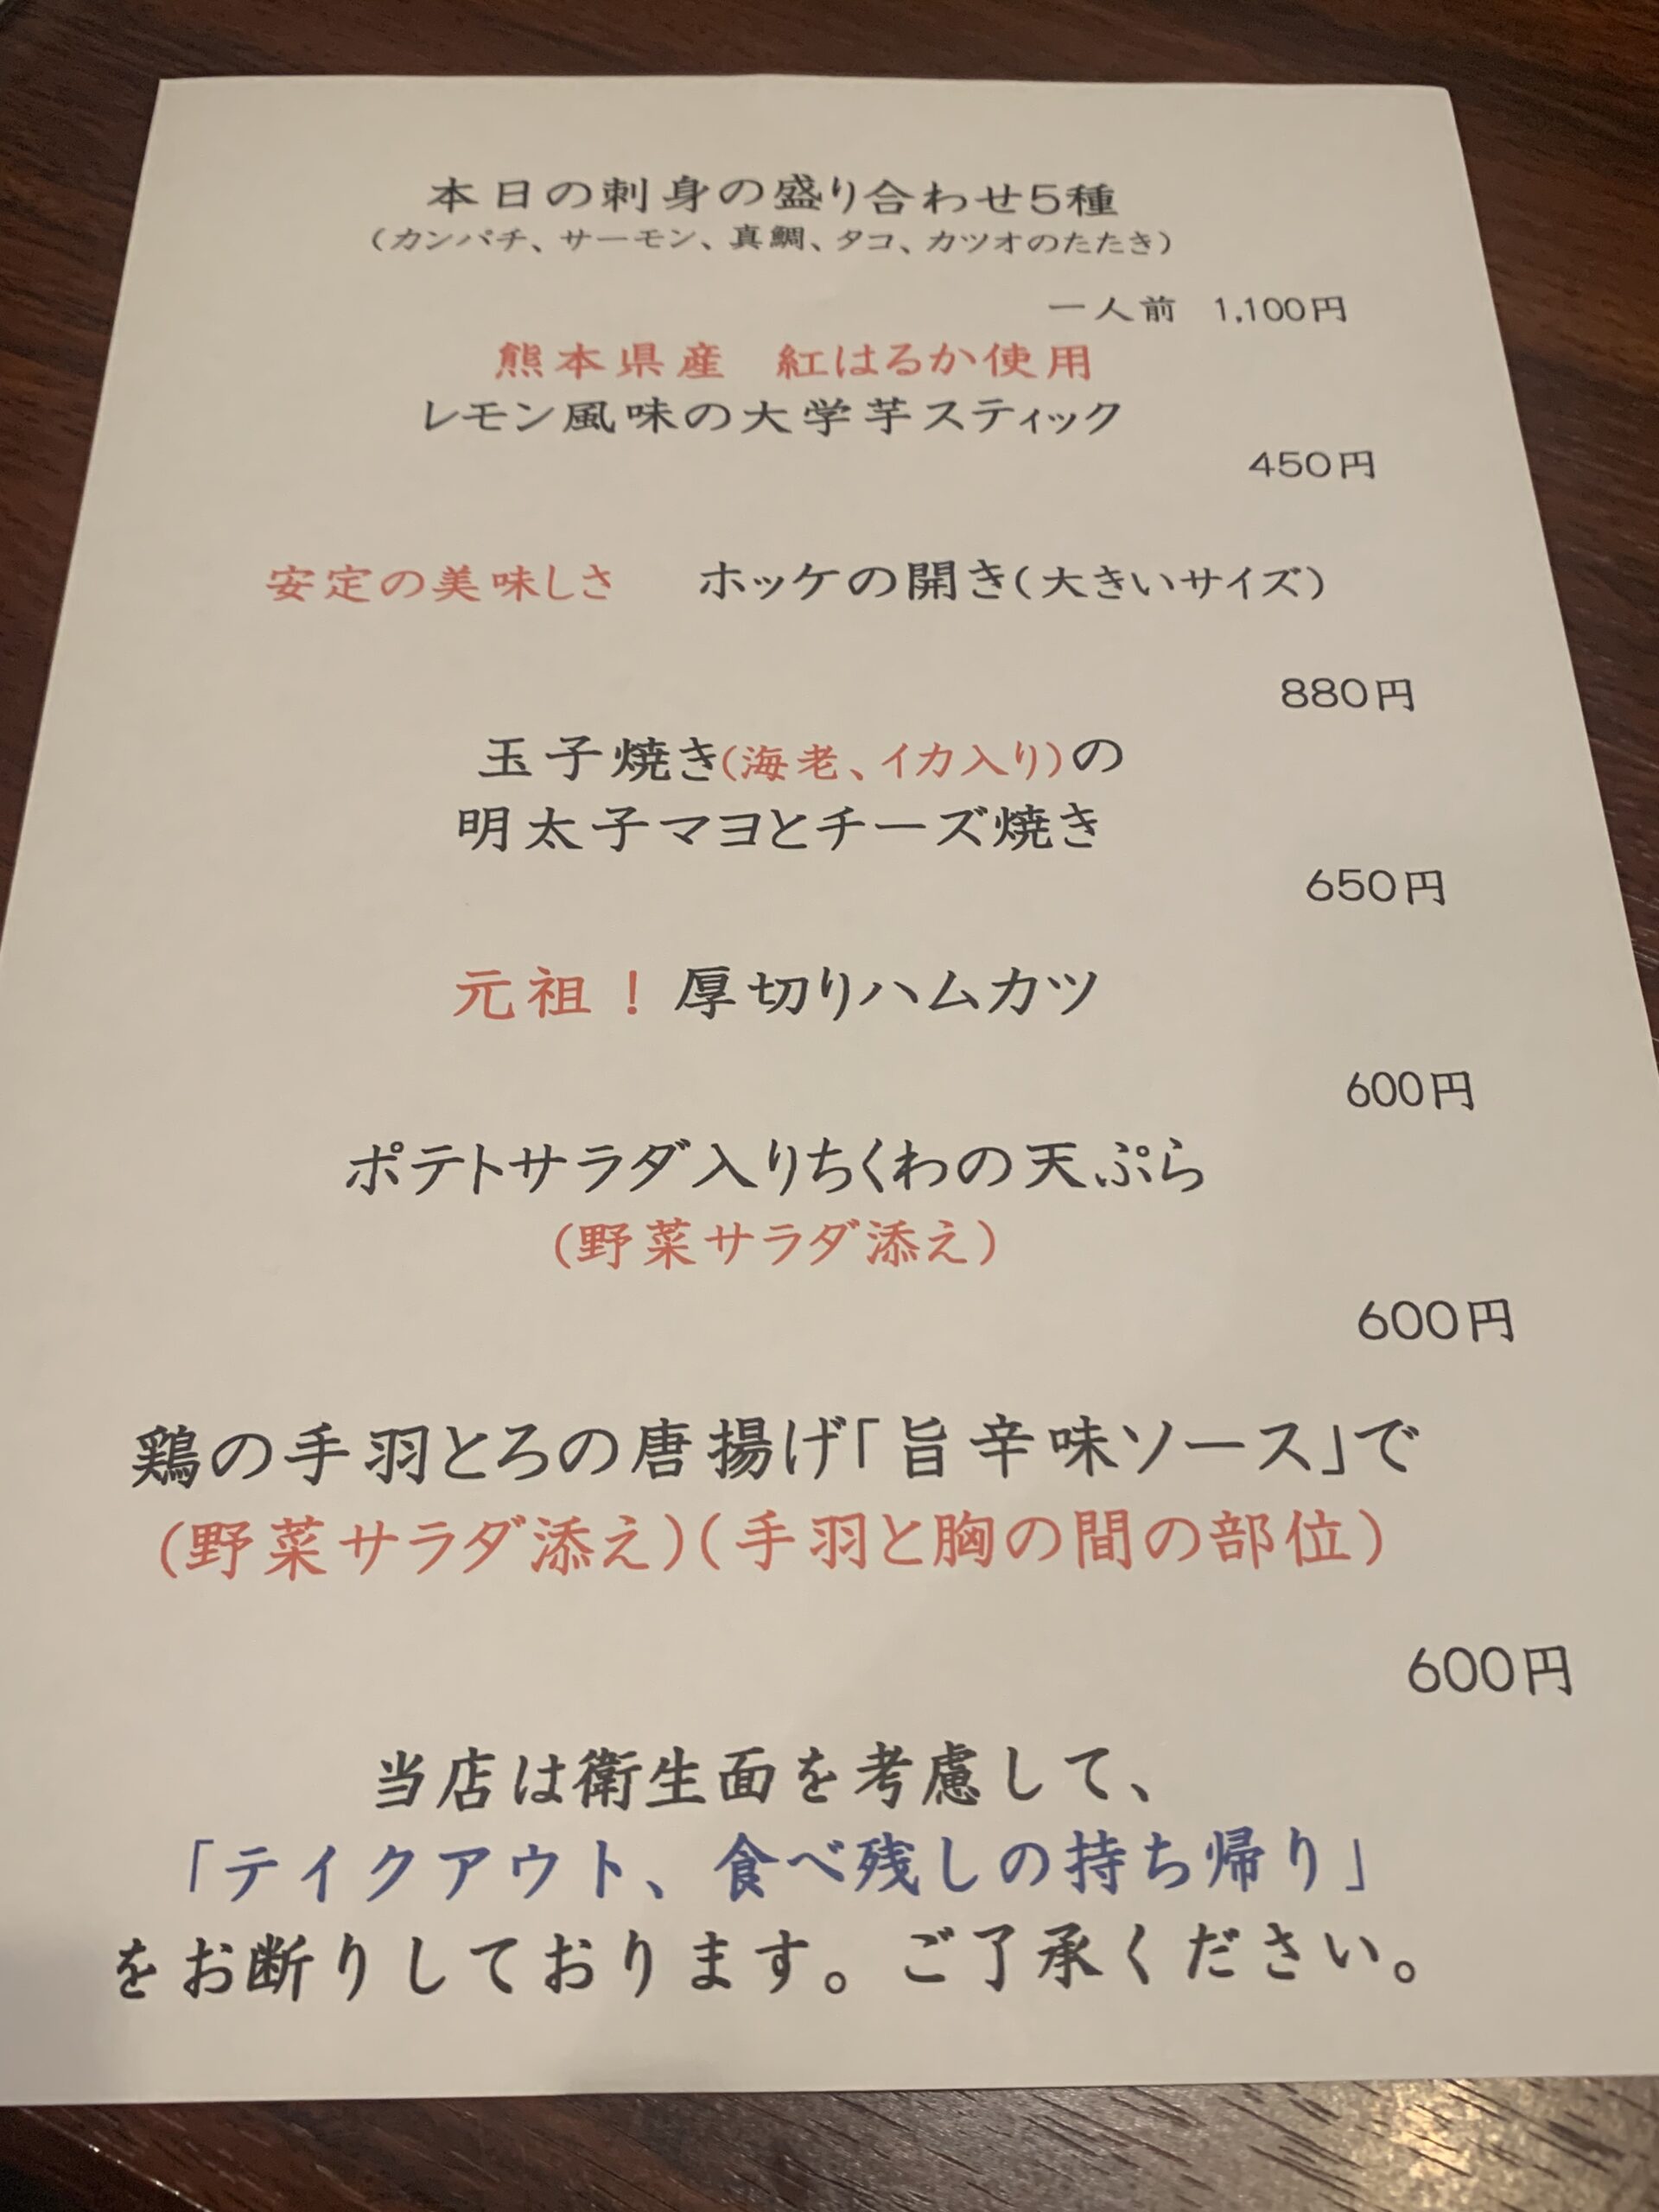 本日の刺身の盛り合わせ5種
（カンパチ、サーモン、真鯛、タコ、カツオのたたき）
一人前 1,100円
熊本県産 紅はるか使用
レモン風味の大学芋スティック
450円
安定の美味しさ ホッケの開き（大きいサイズ）
880円
玉子焼き（海老、イカ入り）の
明太子マヨとチーズ焼き
650円
元祖！厚切りハムカツ
600円
ポテトサラダ入りちくわの天ぷら
（野菜サラダ添え）
600円
鶏の手羽とろの唐揚げ「旨辛味ソース」で
（野菜サラダ添え）（手羽と胸の間の部位）
600円
当店は衛生面を考慮して、
「テイクアウト、食べ残しの持ち帰り」
をお断りしております。ご了承ください。